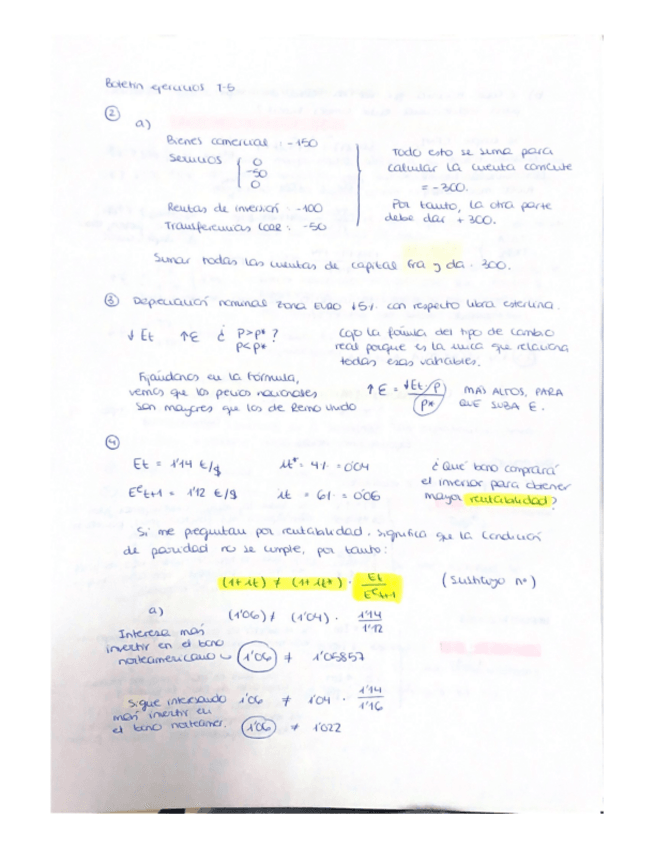 Boletín ejercicios T-5
②
a)
Bienes comercial : -150
Servicios { 0
-50
0
Rentas de inversión : -100
Transferencias corr : -50
Todo esto se suma para
calcular la cuenta corriente
= -300.
Por tanto, la otra parte
debe dar +300.
Sumar todas las cuentas de capital fra y da · 300.
③ Depreciación nominal zona EURO 15% con respecto libra esterlina.
↓ Et ↑ε ¿ P>P* ?
P<P*
Cojo la fórmula del tipo de cambio
real porque es la única que relaciona
todas esas variables.
Fijándonos en la fórmula,
vemos que los precios nacionales
son mayores que los de Reino Unido
↑ ε = ↓Et/P
P*
MÁS ALTOS, PARA
QUE SUBA ε.
④
Et = 1'14 €/$ it* = 4% = 0'04
Eᵉt+1 = 1'12 €/$ it = 6% = 0'06
¿Qué bono comprará
el inversor para obtener
mayor rentabilidad?
Si me preguntan por rentabilidad, significa que la condición
de paridad no se cumple, por tanto:
(1+it) ≠ (1+it*) · Et
Eᵉt+1
(sustituyo nº)
a) (1'06) ≠ (1'04) · 1'14
1'12
Interesa más
invertir en el bono
norteamericano 1'06 ≠ 1'05857
Sigue interesando 1'06 ≠ 1'04 · 1'14
1'16
más invertir en
el bono norteamer. 1'06 ≠ 1'022